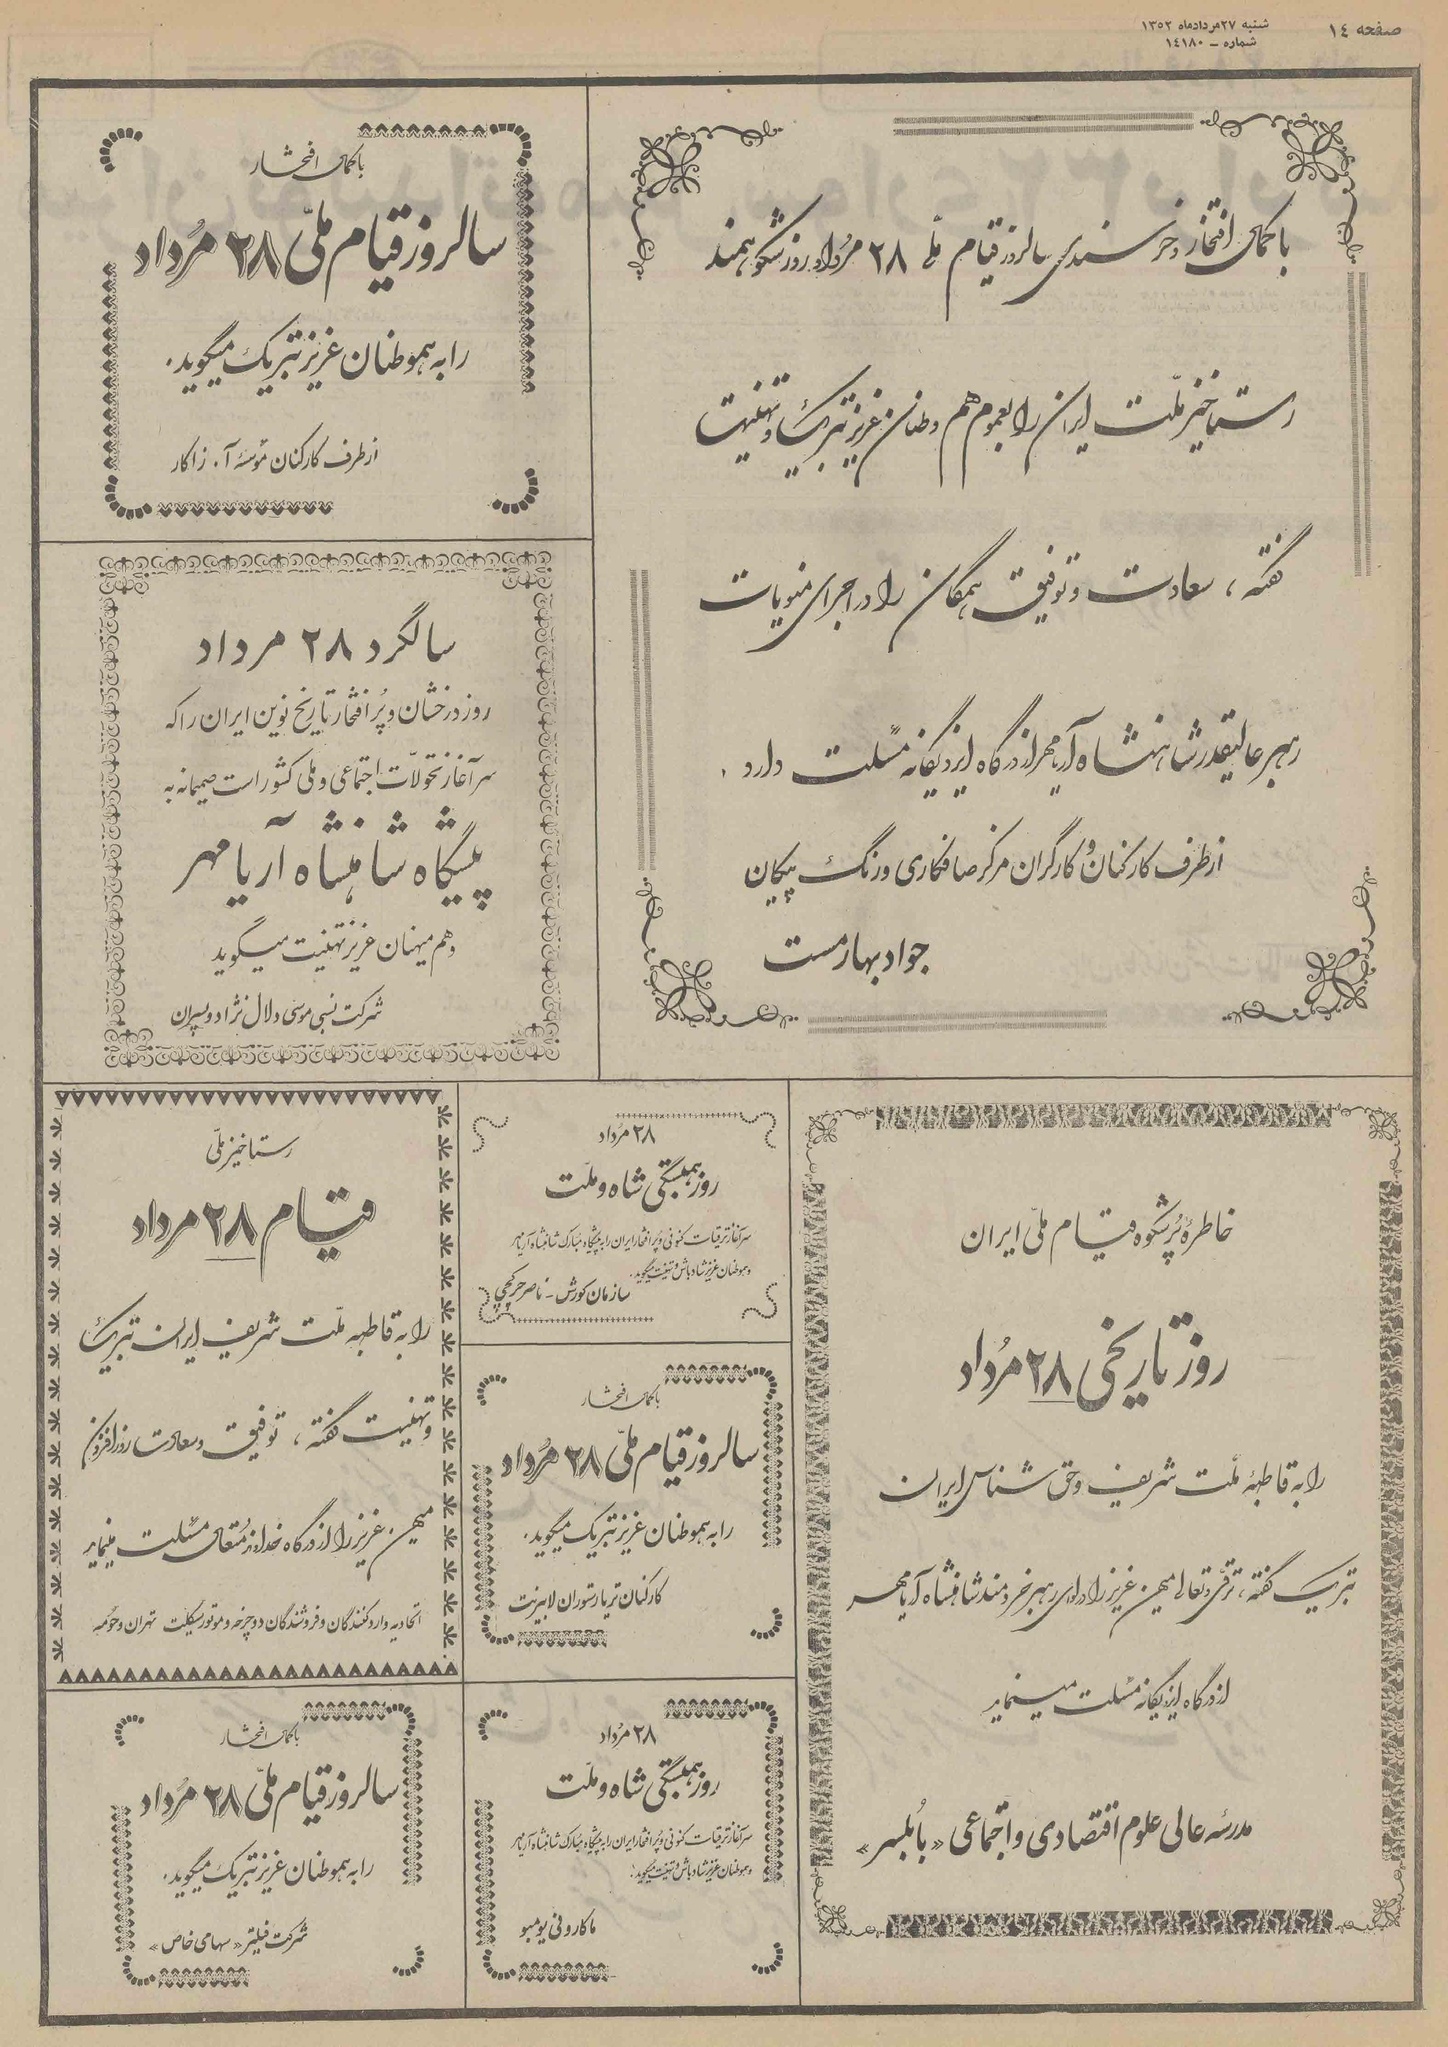 صفحه ١٤
شنبه ٢٧ مردادماه ١٣٥٢
شماره – ١٤١٨٠
با کمال افتخار و خرسندی سالروز قیام ملی ٢٨ مرداد روز شکوهمند
رستاخیز ملّت ایران را بعموم هم وطنان عزیز تبریک و تهنیت
گفته ، سعادت و توفیق همگان را در اجرای منویات
رهبر عالیقدر شاهنشاه آریامهر از درگاه ایزد یگانه مسئلت دارد .
از طرف کارکنان و کارگران مرکز صافکاری و رنگ پیکان
جواد بهارمست
با کمال افتخار
سالروز قیام ملّی ٢٨ مُرداد
را به هموطنان عزیز تبریک میگوید .
از طرف کارکنان موسسه آ . زاکار
سالگرد ٢٨ مرداد
روز درخشان و پُر افتخار تاریخ نوین ایران را که
سرآغاز تحولات اجتماعی و ملی کشور است صمیمانه به
پیشگاه شاهنشاه آریامهر
و هم میهنان عزیز تهنیت میگوید
شرکت نسبی موسی دلال نژاد و پسران
خاطرهٔ پُرشکوه قیام ملّی ایران
روز تاریخی ٢٨ مُرداد
را به قاطبهٔ ملّت شریف و حق شناس ایران
تبریک گفته ، ترقی و تعالی میهن عزیز را در لوای رهبر خردمند شاهنشاه آریامهر
از درگاه ایزد یگانه مسئلت مینماید
مدرسه عالی علوم اقتصادی و اجتماعی «بابلسر»
٢٨ مُرداد
روز همبستگی شاه و ملّت
سرآغاز ترقیات کنونی و پُر افتخار ایران را به پیشگاه مبارک شاهنشاه آریامهر
و هموطنان عزیز شادباش و تهنیت میگوید .
سازمان کورش – ناصر
با کمال افتخار
سالروز قیام ملّی ٢٨ مُرداد
را به هموطنان عزیز تبریک میگوید .
کارکنان تریا رستوران لابیرنت
٢٨ مُرداد
روز همبستگی شاه و ملّت
سرآغاز ترقیات کنونی و پُر افتخار ایران را به پیشگاه مبارک شاهنشاه آریامهر
و هموطنان عزیز شادباش و تهنیت میگوید .
ماکارونی یومبو
رستاخیز ملّی
قیام ٢٨ مرداد
را به قاطبه ملّت شریف ایران تبریک
و تهنیت گفته ، توفیق و سعادت روزافزون
میهن عزیز را از درگاه خداوند مُتعال مسئلت مینماید
اتحادیه واردکنندگان و فروشندگان دوچرخه و موتورسیکلت تهران و حومه
با کمال افتخار
سالروز قیام ملّی ٢٨ مُرداد
را به هموطنان عزیز تبریک میگوید .
شرکت فیلتر «سهامی خاص»